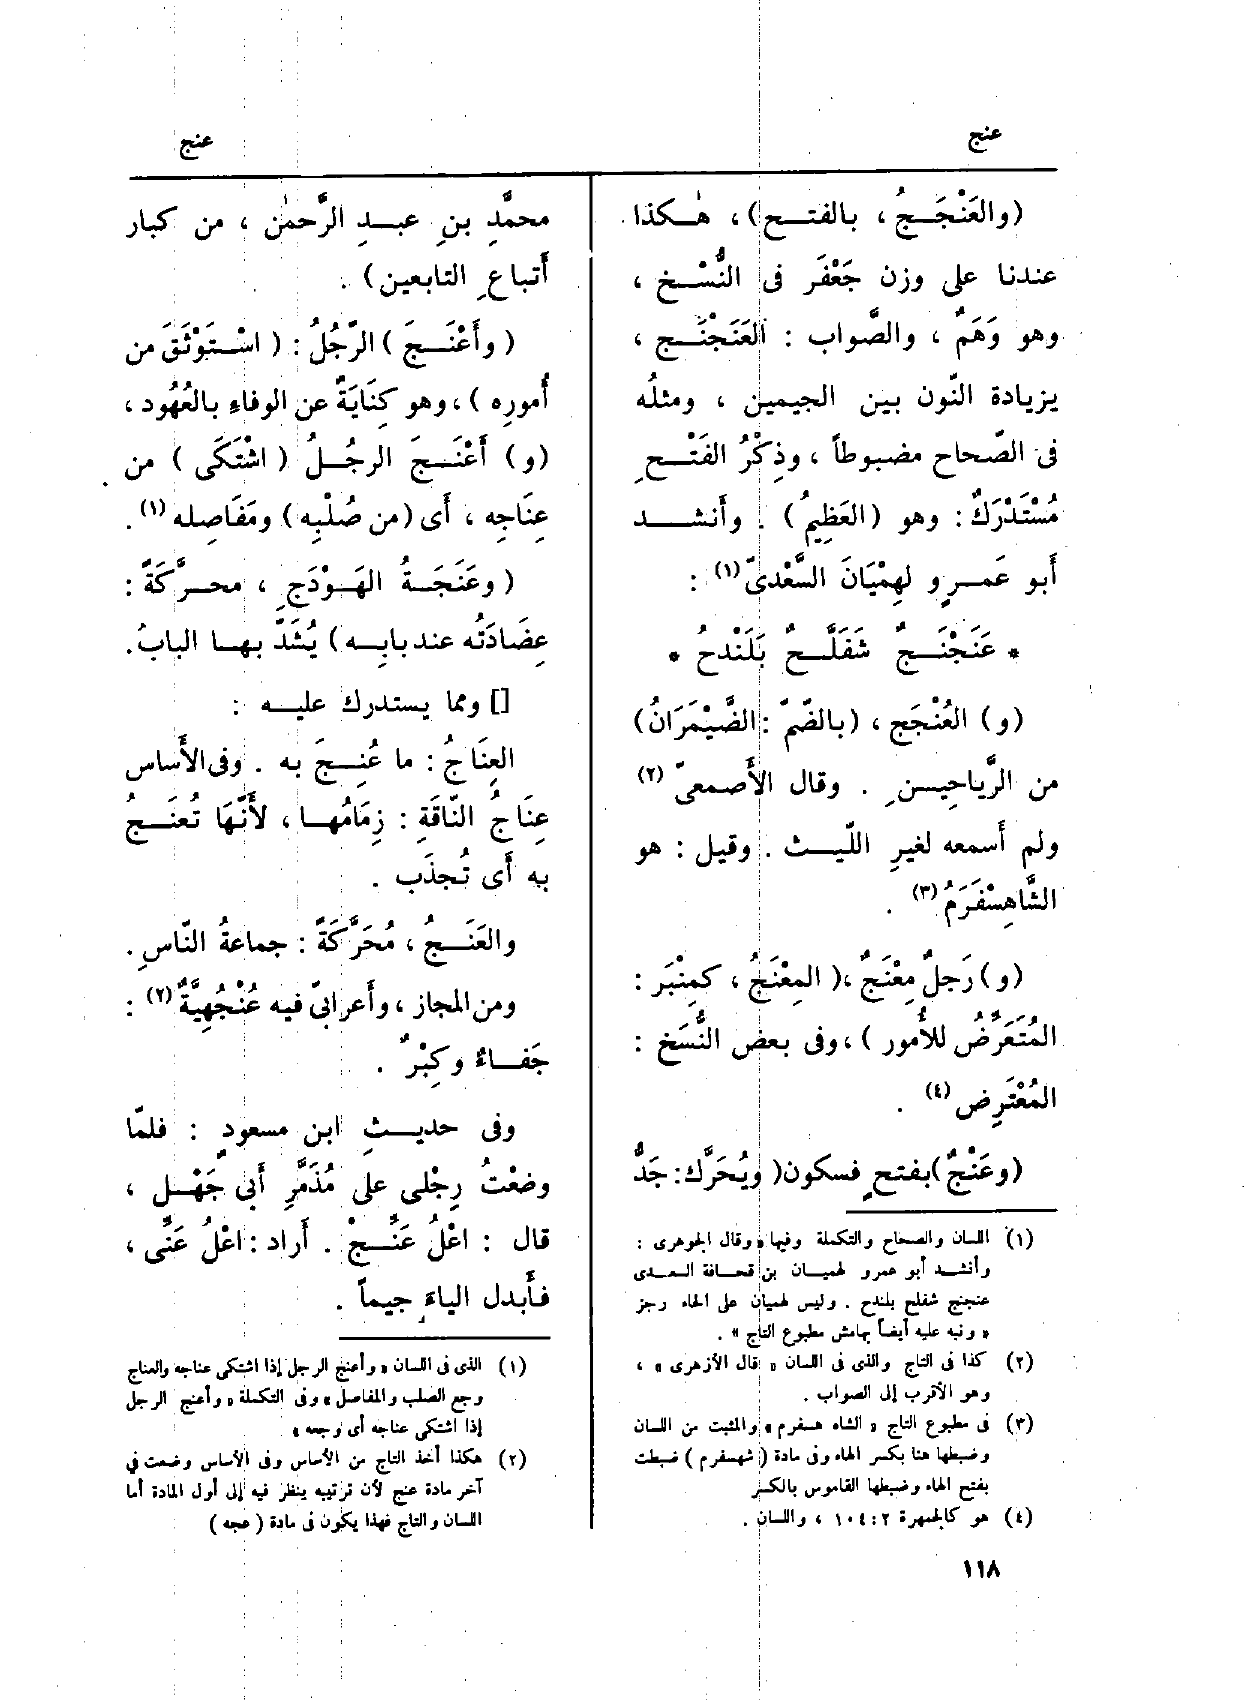 عنج
عنج
(والعَنْجَجُ ، بالفتح) ، هٰكذا
عندنا على وزن جَعْفَر فى النُّسْخ ،
وهو وَهَمٌ ، والصَّواب : العَنَجْنَج ،
بزيادة النّون بين الجيمين ، ومثلُه
فى الصّحاح مضبوطاً ، وذِكْرُ الفَتْحِ
مُسْتَدْرَكٌ : وهو (العَظِيمُ) . وأنشد
أبو عَمرٍو لهِمْيَانَ السَّعْدىّ (١) :
* عَنَجْنَجٌ شَفَلَّحٌ بَلَنْدحُ *
(و) العُنْجَج ، (بالضّمّ : الضَّيْمَرَانُ)
من الرَّياحِينِ . وقال الأَصمعىّ (٢)
ولم أَسمعه لغيرِ اللّيث . وقيل : هو
الشَّاهِسْفَرَمُ (٣) .
(و) رَجلٌ مِعْنَجٌ ، (المِعْنَجُ ، كمِنْبَر :
المُتَعَرِّضُ للأُمور ) ، وفى بعض النُّسَخ :
المُعْتَرِض (٤) .
(وعَنْجٌ) بفتحٍ فسكون ( ويُحَرَّك : جَدُّ
(١) اللسان والصحاح والتكملة وفيها « وقال الجوهرى :
وأنشد أبو عمرو لهميان بن قحافة السعدى
عنجنج شفلح بلندح . وليس لهميان على الحاء رجز
« ونبه عليه أيضاً بهامش مطبوع التاج » .
(٢) كذا فى التاج والذى فى اللسان « قال الأزهرى » ،
وهو الأقرب إلى الصواب .
(٣) فى مطبوع التاج « الشاه هسفرم » والمثبت من اللسان
وضبطها هنا بكسر الهاء وفى مادة ( شهسفرم ) ضبطت
بفتح الهاء وضبطها القاموس بالكسر
(٤) هو كالجمهرة ٢ : ١٠٤ ، واللسان .
محمَّدِ بنِ عبدِ الرَّحمٰن ، من كبار
أَتباعِ التابعين) .
( وأَعْنَجَ ) الرّجُلُ : ( اسْتَوْثَقَ من
أُمورِه ) ، وهو كِنَايَةٌ عن الوفاءِ بالعُهُود ،
(و) أَعْنَجَ الرجُلُ ( اشْتَكَى ) من
عِنَاجِه ، أَى (من صُلْبِه) ومَفَاصِلِه (١) .
( وعَنَجَةُ الهَوْدَجِ ، محرَّكَةً :
عِضَادَتُه عند بابِه ) يُشَدّ بها البابُ .
[] ومما يستدرك عليه :
العِنَاجُ : ما عُنِجَ به . وفى الأَساس
عِنَاجُ النّاقَةِ : زِمَامُها ، لأَنَّهَا تُعنَجُ
به أَى تُجذَب .
والعَنَجُ ، مُحَرَّكَةً : جماعةُ النّاسِ .
ومن المجاز ، وأَعرابىّ فيه عُنْجُهِيَّةٌ (٢) :
جَفاءٌ وكِبْرٌ .
وفى حديثِ ابن مسعودٍ : فلمّا
وضَعْتُ رِجْلى على مُذَمَّرِ أَبى جَهْل ،
قال : اعْلُ عَنِّجْ . أَراد : اعْلُ عَنِّى ،
فأَبدل الياءَ جيماً .
(١) الذى فى اللسان « وأعنج الرجل إذا اشتكى عناجه والعناج
وجع الصلب والمفاصل » وفى التكملة « وأعنج الرجل
إذا اشتكى عناجه أى وجعه »
(٢) هكذا أخذ التاج من الأساس وفى الأساس وضعت فى
آخر مادة عنج لأن ترتيبه ينظر فيه إلى أول المادة أما
اللسان والتاج فهذا يكون فى مادة ( عجه )
١١٨